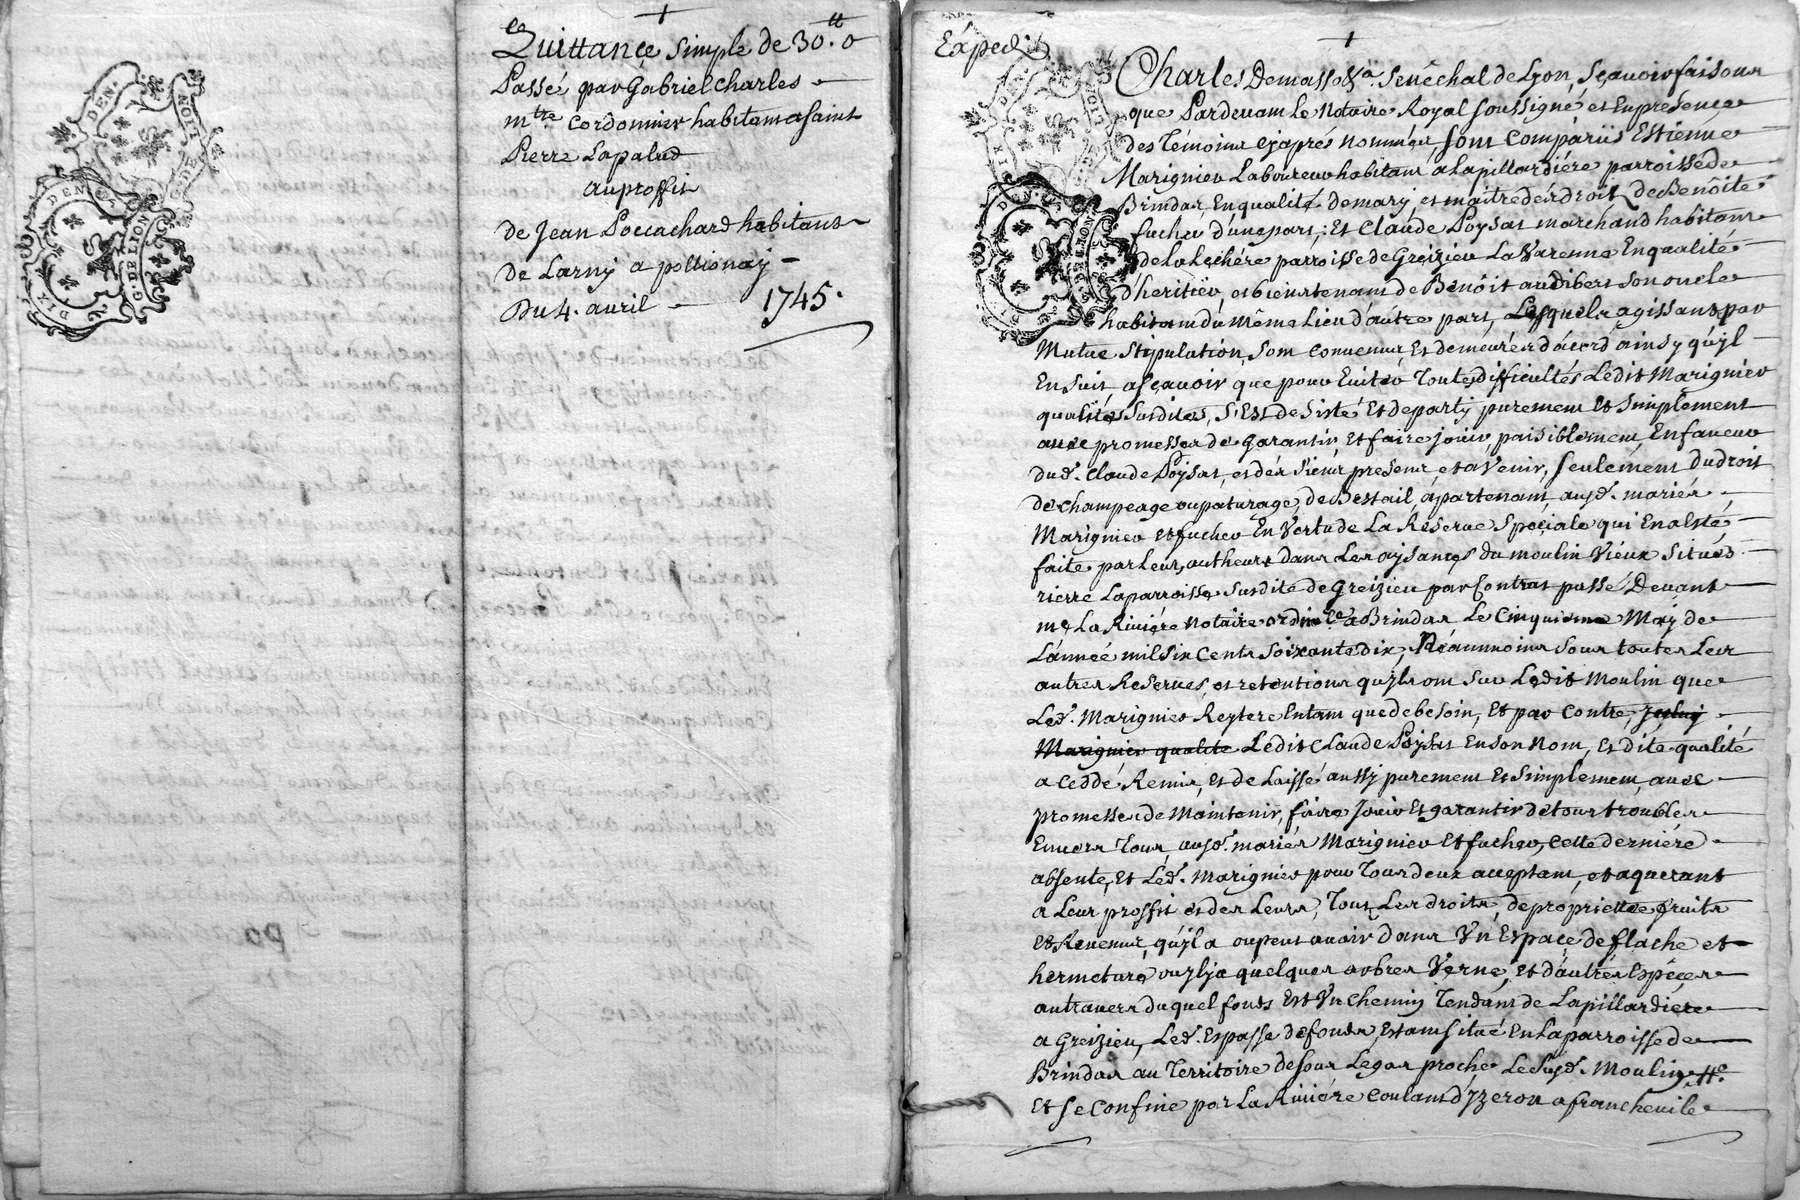 Quittance simple de 30.tt 0
Passé par Gabriel Charles
mtre cordonnier habitant a saint
Pierre Lapalud
au proffit
de Jean Poccachard habitant
de Larny a pollionaÿ
Du 4. avril 1745.
DIX DEN.
G. DE LION
Expedi.
Charles Demasso &a. Senêchal de Lyon, Sçavoir faisons
que Pardevant Le Notaire Royal soussigné et En presence
des Témoins cÿaprés nommés, sont comparüs Estienne
Marignier Laboureur habitant a Lapillardiére parroisse de
Brindas, En qualité de marÿ, et maitre dés droits de Benôite
fucher d'une part; Et Claude Poÿsat marchand habitant
de la Lechére parroisse de Greizieu La Varenne En qualité
d'heritier, et bienstenant de Benôit audibert son oncle
habitant du même Lieu d'autre part, Lesquels agissants par
Mutue Stipulation, sont convenus, Et demeurés d'acord ainsy qu'ÿl
En suit asçavoir que pour Eviter Toutes difficultés Ledit Marignier
qualités Susdites, s'Est desisté Et departÿ purement Et simplement
avec promesses de garantir, et faire joüir paisiblement, En faveur
dud. Claude Poÿsat, et dés siens presens et a Venir, seulement du droit
de champeage ou paturage de Bestail, apartenant ausd. mariés
Marignier et fucher En Vertu de La Réserve Speciale qui En a Esté
faite par Leurs autheurs dans Les aysances du moulin Vieux situés
rierre La parroisse susdite de Greizieu par Contrat passé Devant
me. La Riviére notaire ordinre. a Brindas Le Cinquiéme Maÿ de
L'année mil six Cents Soixante dix, Néanmoins sous toutes Les
autres Reserves, et retentions qu'ÿls ont sur Ledit Moulin que
Led. Marignier Reÿtere Entant que de besoin, Et par contre, jceluÿ
Marignier qualité Ledit Claude Poÿsat En son nom, Et dite qualité
a ceddé Remis, Et de Laissé aussÿ purement Et simplement, avec
promesses de Maintenir, faire Joüir Et garantir de tous troubles
Envers Tous, ausd. mariés Marignier Et fucher, cette derniére
absente, Et Led. Marignier pour Tous deux acceptant, et aquerant
a Leur proffit et des Leurs, Tous Les droits, de proprietté fruits
et Revenus, qu'ÿl a ou peut avoir dans Un Espace de flache et
hermeture, ou ÿlÿa quelques arbres Verne, et d'autres Espéces
au travers duquel fonds Est Un chemin Tendant de Lapillardiére
a Greizieu, Led. Espasse de fonds, Estant situé En La parroisse de
Brindas au Territoire de sous Legas proche Le susd. Moulin
Et se Confine par La Riviére coulant d'yzeron a francheville